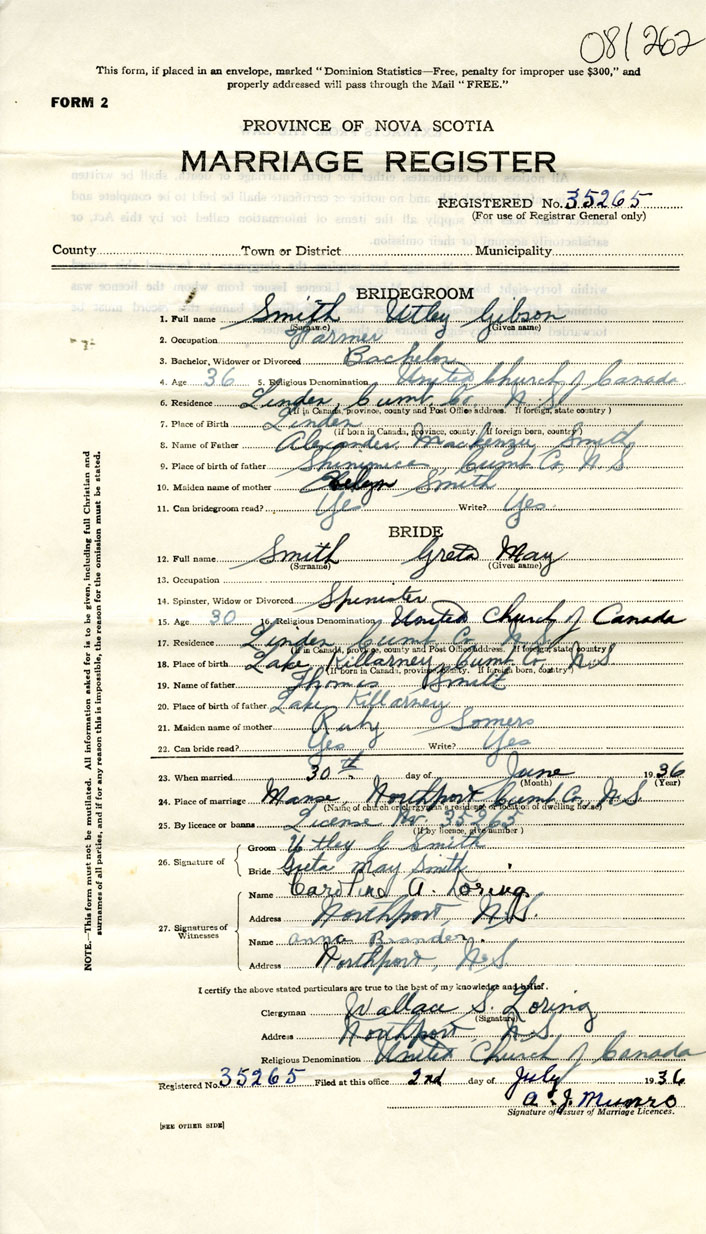 08/262
This form, if placed in an envelope, marked "Dominion Statistics—Free, penalty for improper use $300," and
properly addressed will pass through the Mail "FREE."
FORM 2
PROVINCE OF NOVA SCOTIA
MARRIAGE REGISTER
REGISTERED No. 35265
(For use of Registrar General only)
County Town or District Municipality
BRIDEGROOM
1. Full name Smith Utley Gibson
(Surname) (Given name)
2. Occupation Farmer
3. Bachelor, Widower or Divorced Bachelor
4. Age 36 5. Religious Denomination United Church of Canada
6. Residence Linden Cumb. Co. N.S.
(If in Canada, province, county and Post Office address. If foreign, state country)
7. Place of Birth Linden
(If born in Canada, province, county. If foreign born, country)
8. Name of Father Alexander Mackenzie Smith
9. Place of birth of father Shinimicas, Cumb Co, N S
10. Maiden name of mother Smith
11. Can bridegroom read? Yes Write? Yes.
BRIDE
12. Full name Smith Greta May
(Surname) (Given name)
13. Occupation
14. Spinster, Widow or Divorced Spinister
15. Age 30 16. Religious Denomination United Church of Canada
17. Residence Linden Cumb Co. N.S.
(If in Canada, province, county and Post Office address. If foreign, state country)
18. Place of birth Lake Killarney, Cumb Co, N.S
(If born in Canada, province, county. If foreign born, country)
19. Name of father Thomas Smith
20. Place of birth of father Lake Killarney
21. Maiden name of mother Ruby Somers
22. Can bride read? Yes Write? Yes
23. When married 30th day of June 1936
(Month) (Year)
24. Place of marriage Manse, Northport Cumb Co, N.S.
(Name of church or clergyman's residence or location of dwelling house)
25. By licence or banns License No. 35265
(If by licence, give number)
26. Signature of
Groom Utley G Smith
Bride Greta May Smith
27. Signatures of
Witnesses
Name Caroline A. Loring
Address Northport, N.S.
Name Anna Brander.
Address Northport, N.S
I certify the above stated particulars are true to the best of my knowledge and belief.
Clergyman Wallace S. Loring
(Signature)
Address Northport N.S.
Religious Denomination United Church of Canada
Registered No. 35265 Filed at this office 2nd day of July 1936
A. J. Munro
Signature of Issuer of Marriage Licences.
[SEE OTHER SIDE]
NOTE.—This form must not be mutilated. All information asked for is to be given, including full Christian and
surnames of all parties, and if for any reason this is impossible, the reason for the omission must be stated.